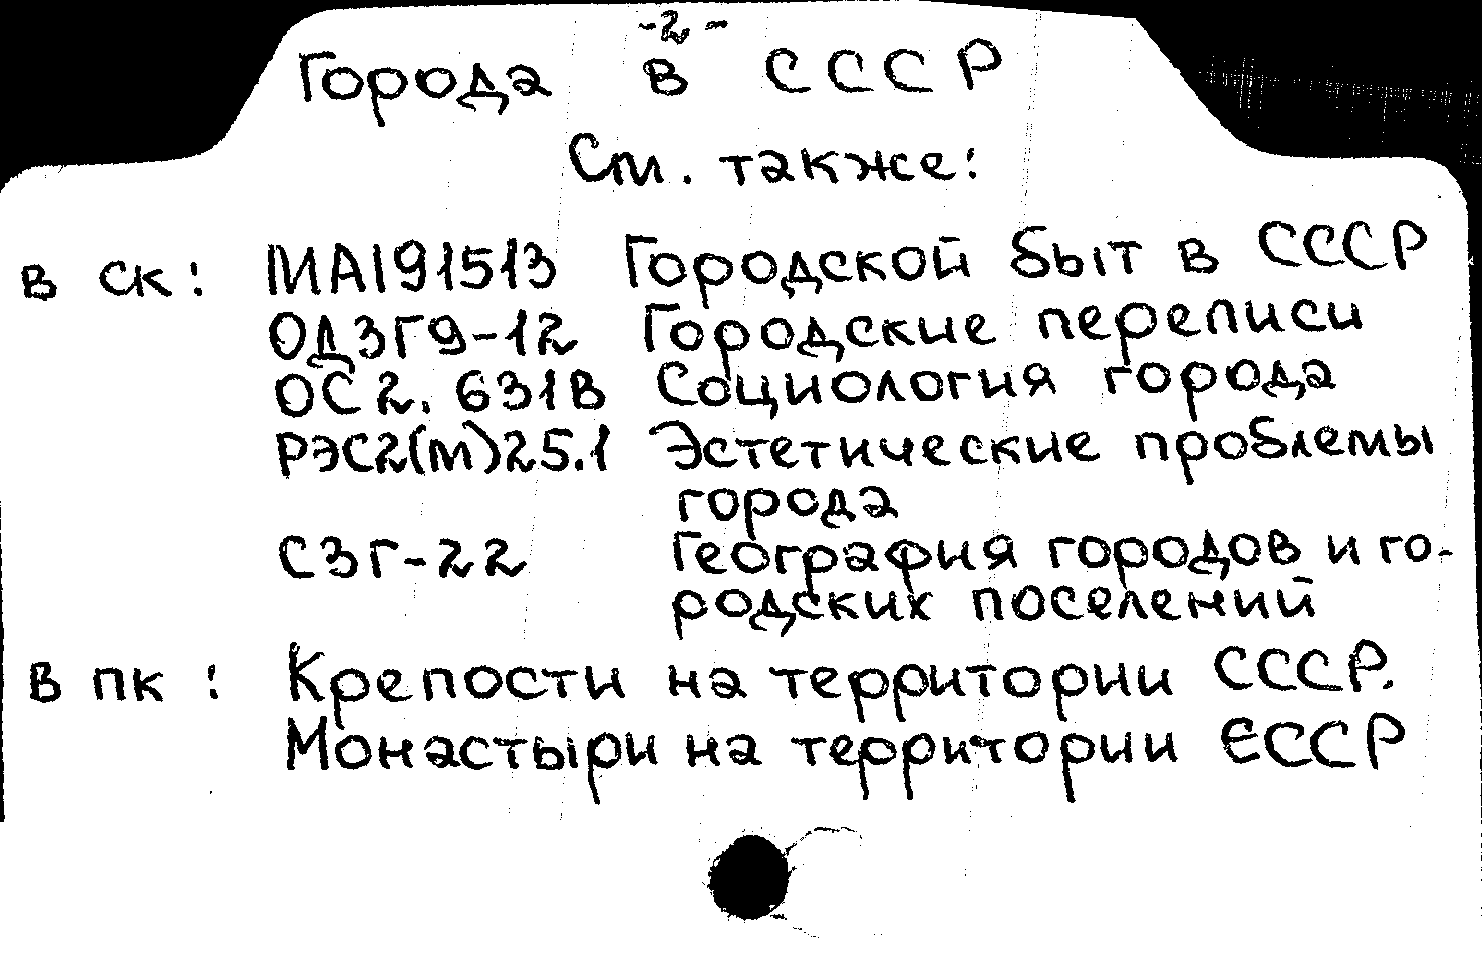 -2-
Города в СССР
См. также:
в ск: МА191513 Городской быт в СССР
ОДЗГ9-12 Городские переписи
ОС2.631В Социология города
РЭС2(М)25.1 Эстетические проблемы
города
СЗГ-22 География городов и го-
родских поселений
В пк: Крепости на территории СССР.
Монастыри на территории СССР